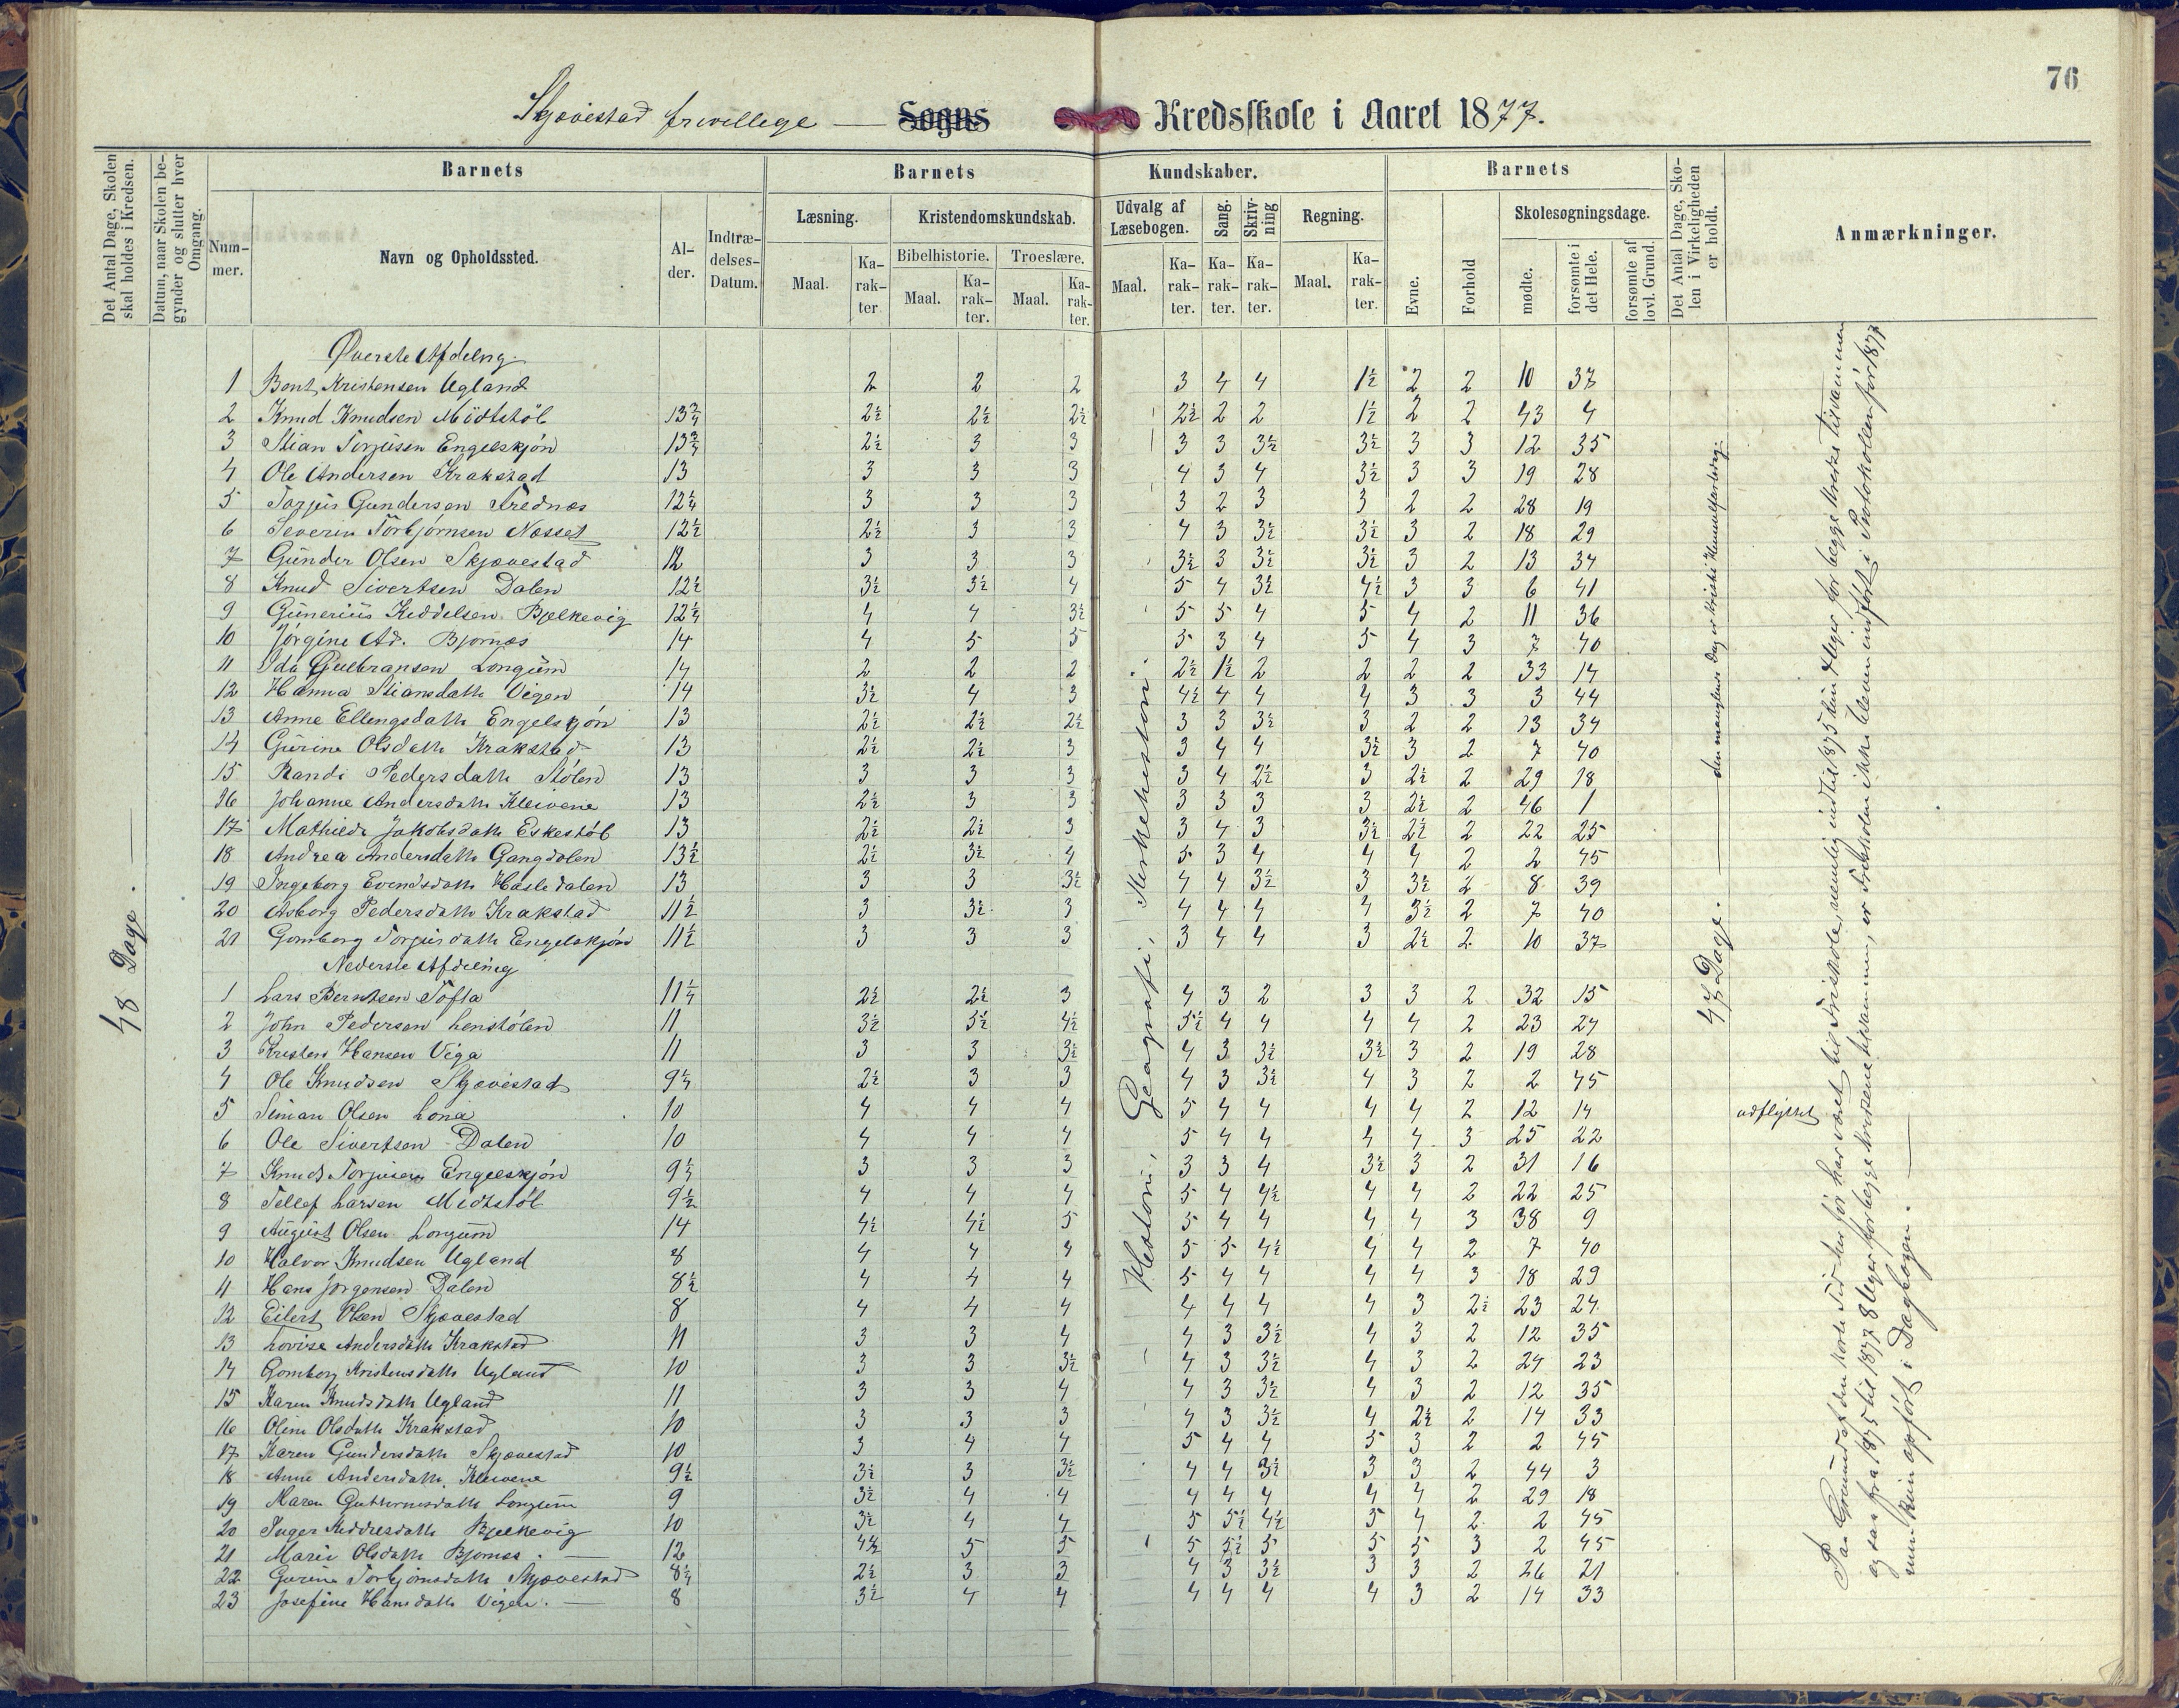 76
Skjævestad frivillege — Sogns Kredsskole i Aaret 1877.
Det Antal Dage, Skolen skal holdes i Kredsen.
Datum, naar Skolen begynder og slutter hver Omgang.
Barnets
Barnets Kundskaber.
Barnets
Det Antal Dage, Skolen i Virkeligheden er holdt.
Anmærkninger.
Nummer.
Navn og Opholdssted.
Alder.
Indtrædelses-Datum.
Læsning.
Kristendomskundskab.
Udvalg af Læsebogen.
Sang.
Skrivning
Regning.
Evne.
Forhold
Skolesøgningsdage.
Bibelhistorie.
Troeslære.
Maal.
Karakter
Maal.
Karakter.
Maal.
Karakter.
Maal.
Karakter.
Karakter.
Karakter.
Maal.
Karakter.
mødte.
forsømte i det Hele.
forsømte af lovl. Grund.
48 Dage.
Øverste Afdeling.
1 Bent Kristensen Ugland 2 2 2 3 4 4 1½ 2 2 10 37
2 Knud Knudsen Midtstøl 13¾ 2½ 2½ 2½ 2½ 2 2 1½ 2 2 43 4
3 Stian Torjusen Engelskjøn 13¾ 2½ 3 3 3 3 3½ 3½ 3 3 12 35
4 Ole Andersen Krakstad 13 3 3 3 4 3 4 3½ 3 3 19 28
5 Torjus Gundersen Trednæs 12¼ 3 3 3 3 2 3 3 2 2 28 19
6 Severin Torbjørnsen Nesset 12½ 2½ 3 3 4 3 3½ 3½ 3 2 18 29
7 Gunder Olsen Skjævestad 12 3 3 3 3½ 3 3½ 3½ 3 2 13 34
8 Knud Sivertsen Dalen 12½ 3½ 3½ 4 5 4 3½ 4½ 3 3 6 41
9 Gunerius Keddelsen Bjelkevig 12¼ 4 4 3½ 5 5 4 5 4 2 11 36
10 Jørgine Ad. Bjornæs 14 4 5 5 5 3 4 5 4 3 7 40
11 Ida Gulbransen Longum 14 2 2 2 2½ 1½ 2 2 2 2 33 14
12 Hanna Stiansdatt. Vigen 14 3½ 4 3 4½ 4 4 4 3 3 3 44
13 Anne Ellengsdatt. Engelskjøn 13 2½ 2½ 2½ 3 3 3½ 3 2 2 13 34
14 Gurine Olsdatt. Krakstad 13 2½ 2½ 3 3 4 4 3½ 3 2 7 40
15 Randi Pedersdatt. Stølen 13 3 3 3 3 4 2½ 3 2½ 2 29 18
16 Johanne Andersdatt. Kleivene 13 2½ 3 3 3 3 3 3 2½ 2 46 1
17 Mathilde Jakobsdatt. Eskestøl 13 2½ 2½ 3 3 4 3 3½ 2½ 2 22 25
18 Andrea Andersdatt. Gangdalen 13½ 2½ 3½ 4 5 3 4 4 4 2 2 45
19 Ingeborg Evendsdatt. Hasledalen 13 3 3 3½ 4 4 3½ 3 3½ 2 8 39
20 Asborg Pedersdatt. Krakstad 11½ 3 3½ 3 4 4 4 4 3½ 2 7 40
21 Gomborg Torjusdatt. Engelskjøn 11½ 3 3 3 3 4 4 3 2½ 2 10 37
Nederste Afdeling
1 Lars Berntsen Tofta 11¼ 2½ 2½ 3 4 3 2 3 3 2 32 15
2 John Pedersen Lenstølen 11 3½ 3½ 4½ 5½ 4 4 4 4 2 23 24
3 Kristen Hansen Viga 11 3 3 3½ 4 3 3½ 3½ 3 2 19 28
4 Ole Knudsen Skjævestad 9¼ 2½ 3 3 4 3 3½ 4 3 2 2 45
5 Simon Olsen Lona 10 4 4 4 5 4 4 4 4 2 12 14 udflyttet
6 Ole Sivertsen Dalen 10 4 4 4 5 4 4 4 4 3 25 22
7 Knud Torjusen Engelskjøn 9¼ 3 3 3 3 3 4 3½ 3 2 31 16
8 Tellef Larsen Midtstøl 9½ 4 4 4 5 4 4½ 4 4 2 22 25
9 August Olsen Longum 14 4½ 4½ 5 5 4 4 4 4 3 38 9
10 Halvor Knudsen Ugland 8 4 4 4 5 5 4½ 4 4 2 7 40
11 Hans Jørgensen Dalen 8½ 4 4 4 5 4 4 4 4 3 18 29
12 Eilert Olsen Skjævestad 8 4 4 4 4 4 4 4 3 2½ 23 24
13 Lovise Andersdatt. Krakstad 11 3 3 4 4 3 3½ 4 3 2 12 35
14 Gomborg Kristensdatt. Ugland 10 3 3 3½ 4 3 3½ 4 3 2 24 23
15 Karen Knudsdatt. Ugland 11 3 3 4 4 3 3½ 4 3 2 12 35
16 Oline Olsdatt. Krakstad 10 3 3 3 4 3 3½ 4 2½ 2 14 33
17 Karen Gundersdatt. Skjævestad 10 3 4 4 5 4 4 5 3 2 2 45
18 Anne Andersdatt. Kleivene 9½ 3½ 3 3½ 4 4 3½ 3 3 2 44 3
19 Maren Guttormsdatt. Longum 9 3½ 4 4 4 4 4 4 4 2 29 18
20 Inger Keddelsdatt. Bjelkevig 10 3½ 4 4 5 5½ 4½ 5 4 2 2 45
21 Marie Olsdatt. Bjornæs. — 12 4½ 5 5 5 5½ 5 5 5 3 2 45
22 Gurine Torbjørnsdatt. Skjævestad 8¼ 2½ 3 3 4 3 3½ 3 3 2 26 21
23 Josefine Hansdatt. Vigen. — 8 3½ 4 4 4 4 4 4 3 2 14 33
Historie, Geografi, Kirkehistorie.
47 Dage. — den manglende Dag er
Paa Grund af den korte Tid her før har været til Friskole, nemlig indtil 1875 kun 4 Uger for begge Kredse tilsammen
og saa fra 1875 til 1877 8 Uger for begge Kredsene tilsammen, er Friskolen ikke bleven indført i Protokollen før 1877
men kun opført i Dagbogen. —